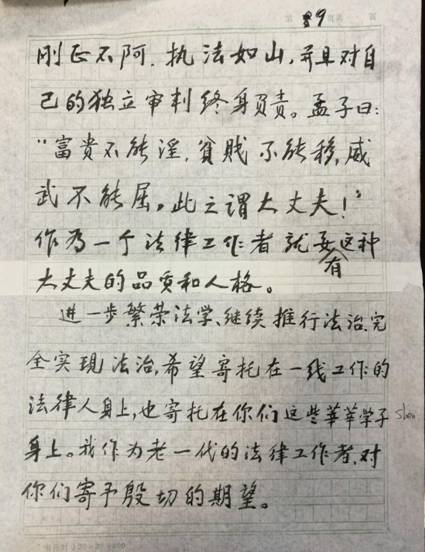 第 39 页
刚正不阿，执法如山，并且对自
己的独立审判终身負责。孟子曰：
“富贵不能淫，貧賎不能移，威
武不能屈，此之谓大丈夫！”
作为一个法律工作者就要有这种
大丈夫的品质和人格。
进一步繁荣法学、继续推行法治、完
全实现法治，希望寄托在一线工作的
法律人身上，也寄托在你们这些莘莘学子 shen
身上。我作为老一代的法律工作者，对
你们寄予殷切的期望。